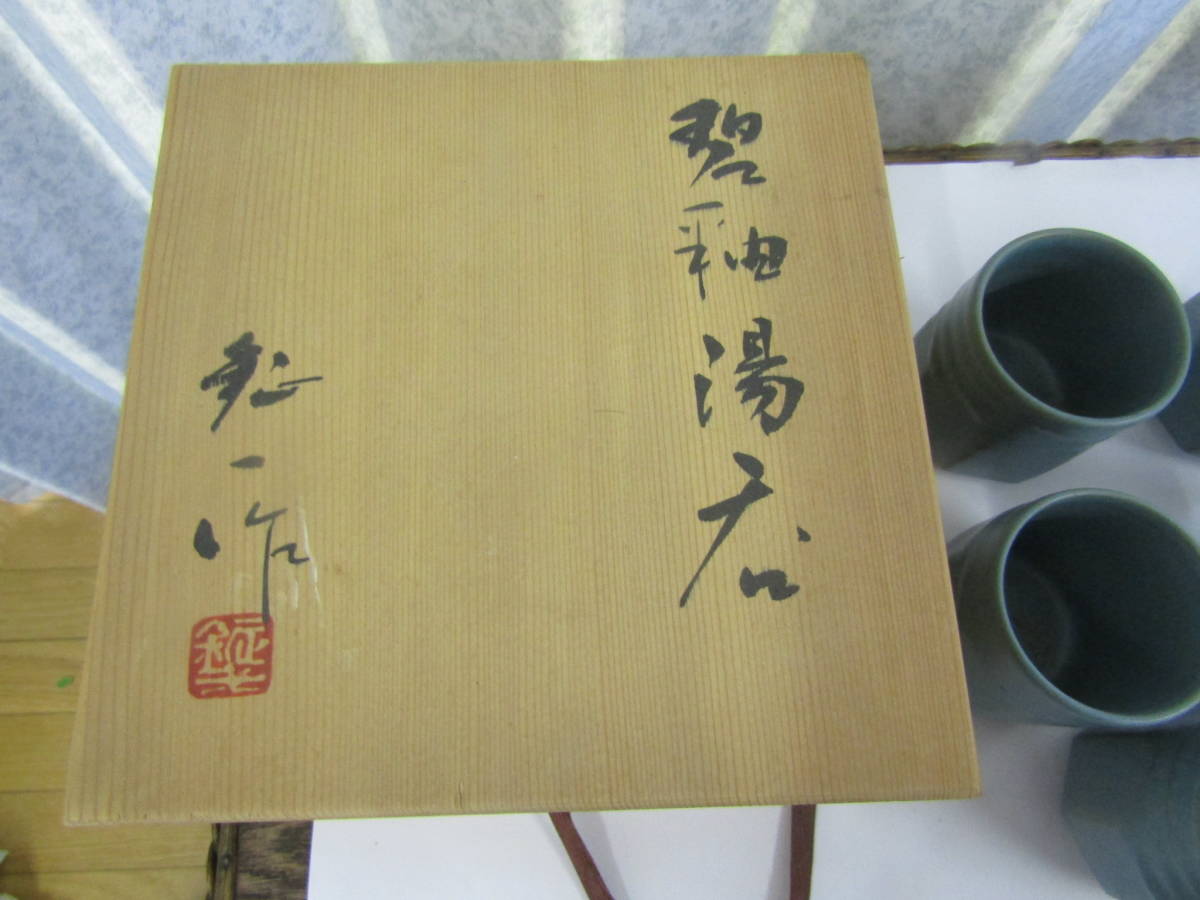 碧釉湯呑
鉦一作